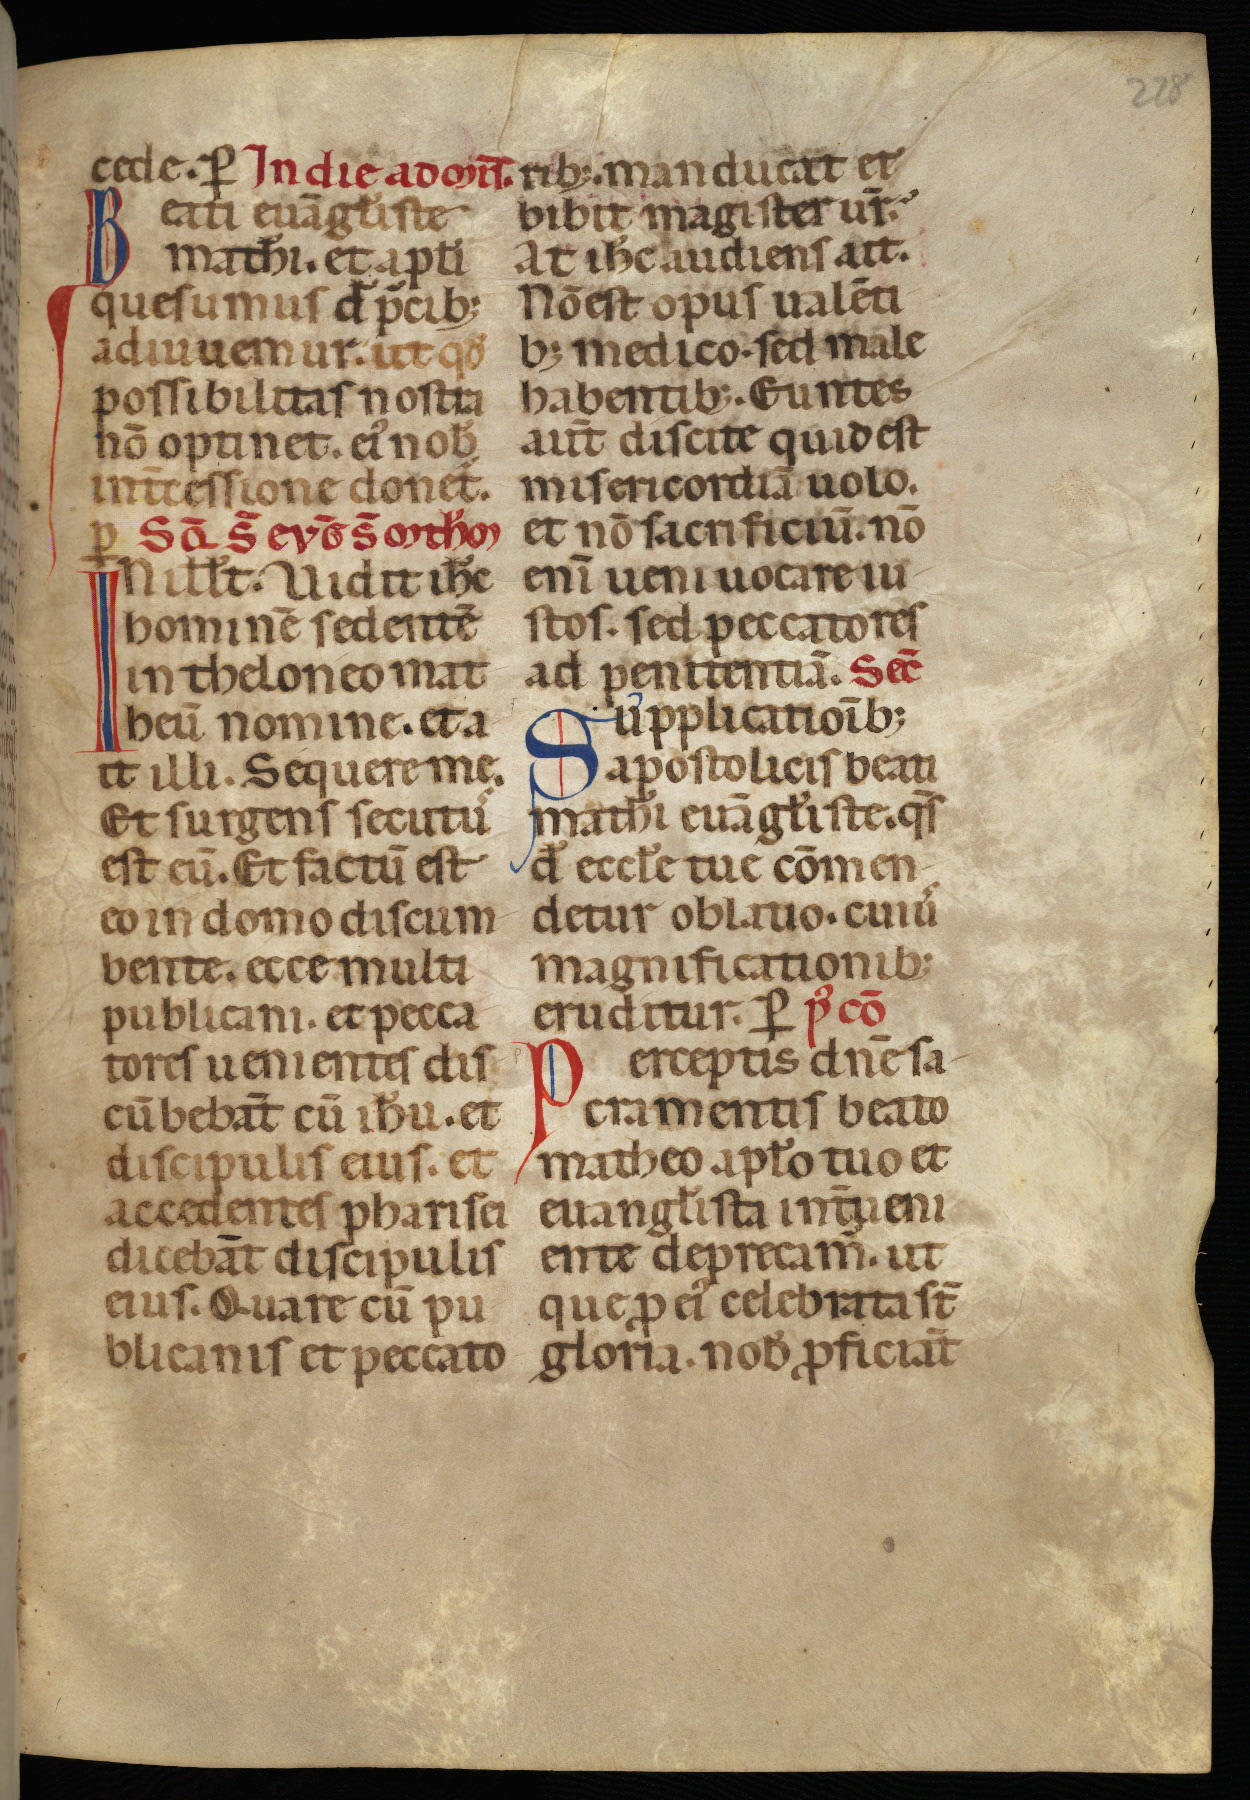 228
cede. ꝑ In die ad om̄.
Beati euāgl̄iste
mathi. et apłi
quesumus d̄ p̄cib;
adiuuemur. ut qđ
possibilitas nostra
nō optinet. eiꝰ nob̄
int̄cessione donet̄.
p
Nill̄t. Uidit ih̄c
hominē sedentē
in theloneo mat
heū nomine. et a
it illi. Sequere me.
Et surgens secutuꝰ
est eū. Et factū est
eo in domo discum
bente. ecce multi
publicani. et pecca
tores uenientes dis
cūbebāt cū ih̄u. et
discipulis eius. et
accedentes pharisei
dicebāt discipulis
eius. Quare cū pu
blicanis et peccato
rib;. manducat et
bibit magister ur̄.
At ih̄c audiens ait.
Nō est opus ualēti
b; medico. sed male
habentib;. Euntes
aut̄ discite quid est
misericordiā uolo.
et nō sacrificiū. nō
eni̅ ueni uocare iu
stos. sed peccatores
ad penitentiā. Sec̄
Supplicatioīb;
apostolicis beati
mathi euāgl̄iste. qs̄
d̄ eccl̄e tue cōmen
detur oblatio. cuiuꝰ
magnificationib;
eruditur. ꝑ pꝰ cō
Perceptis dn̄e sa
cramentis beato
matheo apl̄o tuo et
euangl̄ista int̄ueni
ente deprecam̄. ut
que ꝓ eiꝰ celebrata st̄
gloria. nob̄ ꝓficiāt